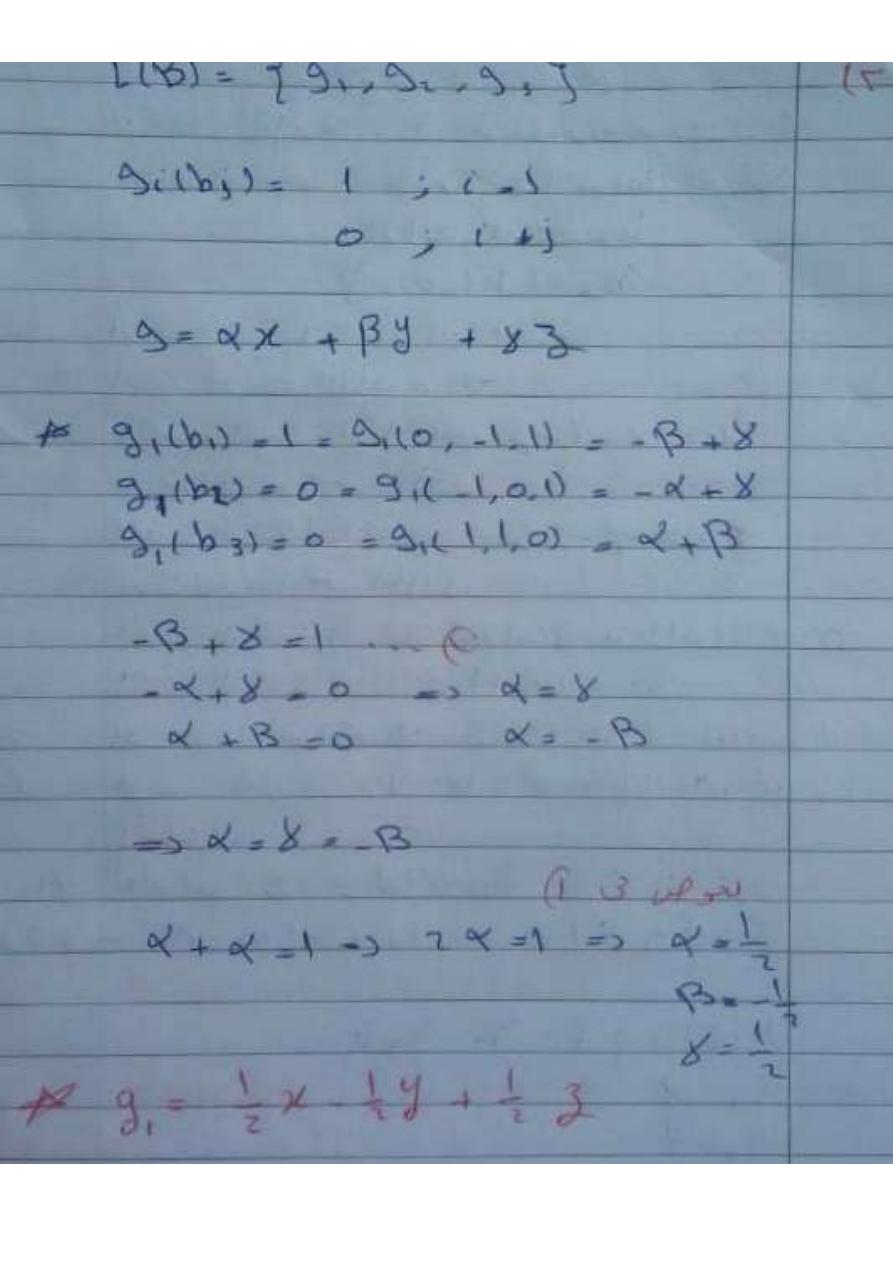 L(B) = { g₁, g₂, g₃ }
gᵢ(bⱼ) = 1 ; i = j
0 ; i ≠ j
g = αx + βy + γz
* g₁(b₁) = 1 = g₁(0, -1, 1) = -β + γ
g₁(b₂) = 0 = g₁(-1, 0, 1) = -α + γ
g₁(b₃) = 0 = g₁(1, 1, 0) = α + β
-β + γ = 1 ....
-α + γ = 0 => α = γ
α + β = 0 α = -β
=> α = γ = -β
نعوض في 1)
α + α = 1 => 2α = 1 => α = 1/2
β = -1/2
γ = 1/2
* g₁ = 1/2 x - 1/2 y + 1/2 z